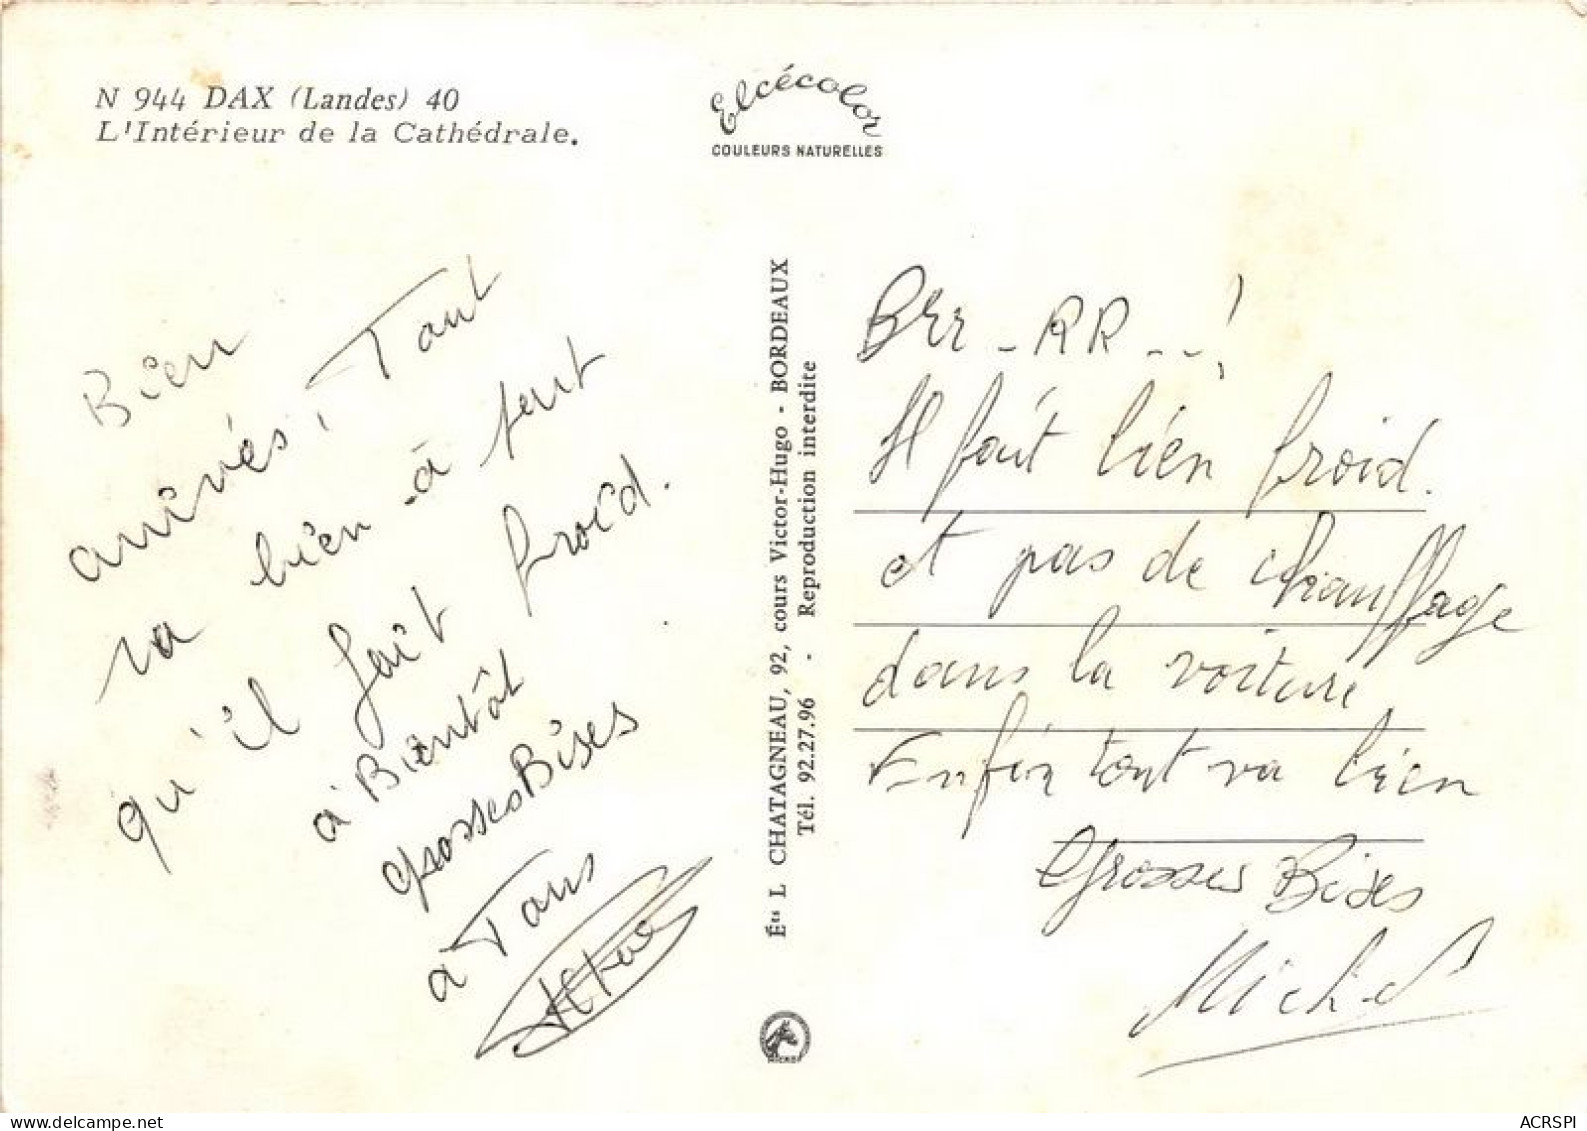 N 944 DAX (Landes) 40
L'Intérieur de la Cathédrale.
Elcécolor
COULEURS NATURELLES
Bien
arrivés, Tout
va bien à part
qu'il fait froid.
à Bientôt
Grosses Bises
à Tous
Éts L CHATAGNEAU, 92, cours Victor-Hugo - BORDEAUX
Tél. 92.27.96 - Reproduction interdite
Brr - RR - - !
Il fait bien froid.
et pas de chauffage
dans la voiture
Enfin tout va bien
Grosses Bises
Michel
www.delcampe.net
ACRSPI